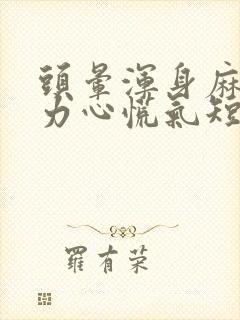 頭暈渾身麻
力心慌氣短
羅有荣